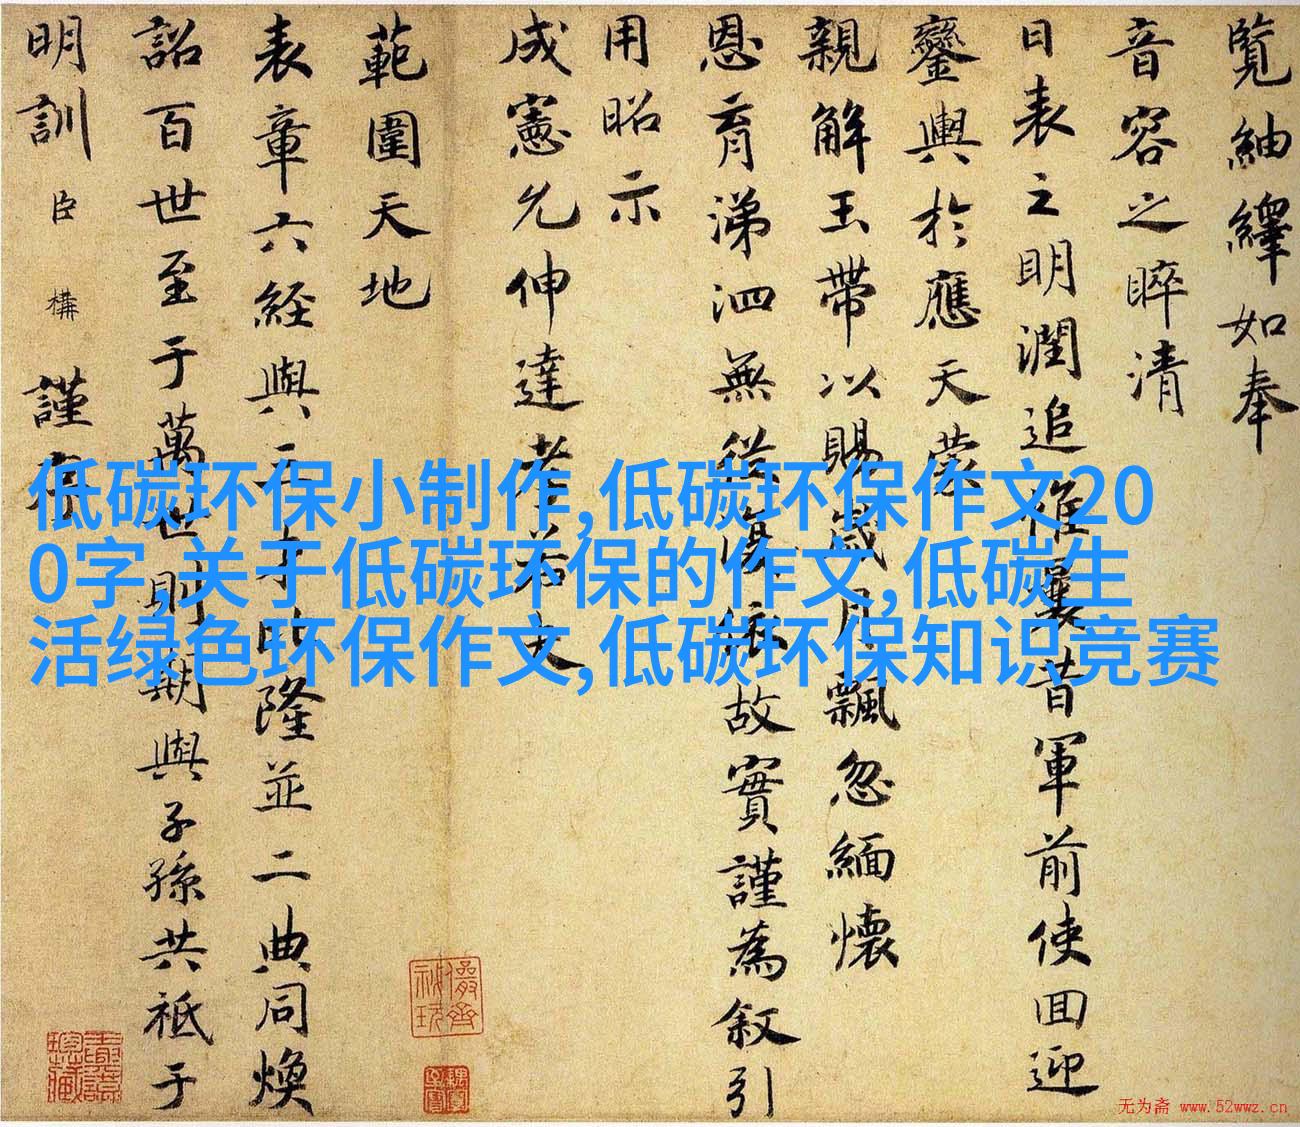 覽紬繹如奉
音容之睟清
日表之明潤追惟曩昔軍前使囬迎
鑾輿於應天蒙
親解玉帶以賜歲月飄忽緬懷
恩育涕泗無從依故實謹為叙引
用昭示
成憲允伸達孝若夫
範圍天地
表章六經與比隆並二典同煥
詔百世至于萬世則期與子孫共祗于
明訓臣構謹序
低碳环保小制作,低碳环保作文20
0字,关于低碳环保的作文,低碳生
活绿色环保作文,低碳环保知识竞赛
无为斋 www.52wwz.cn